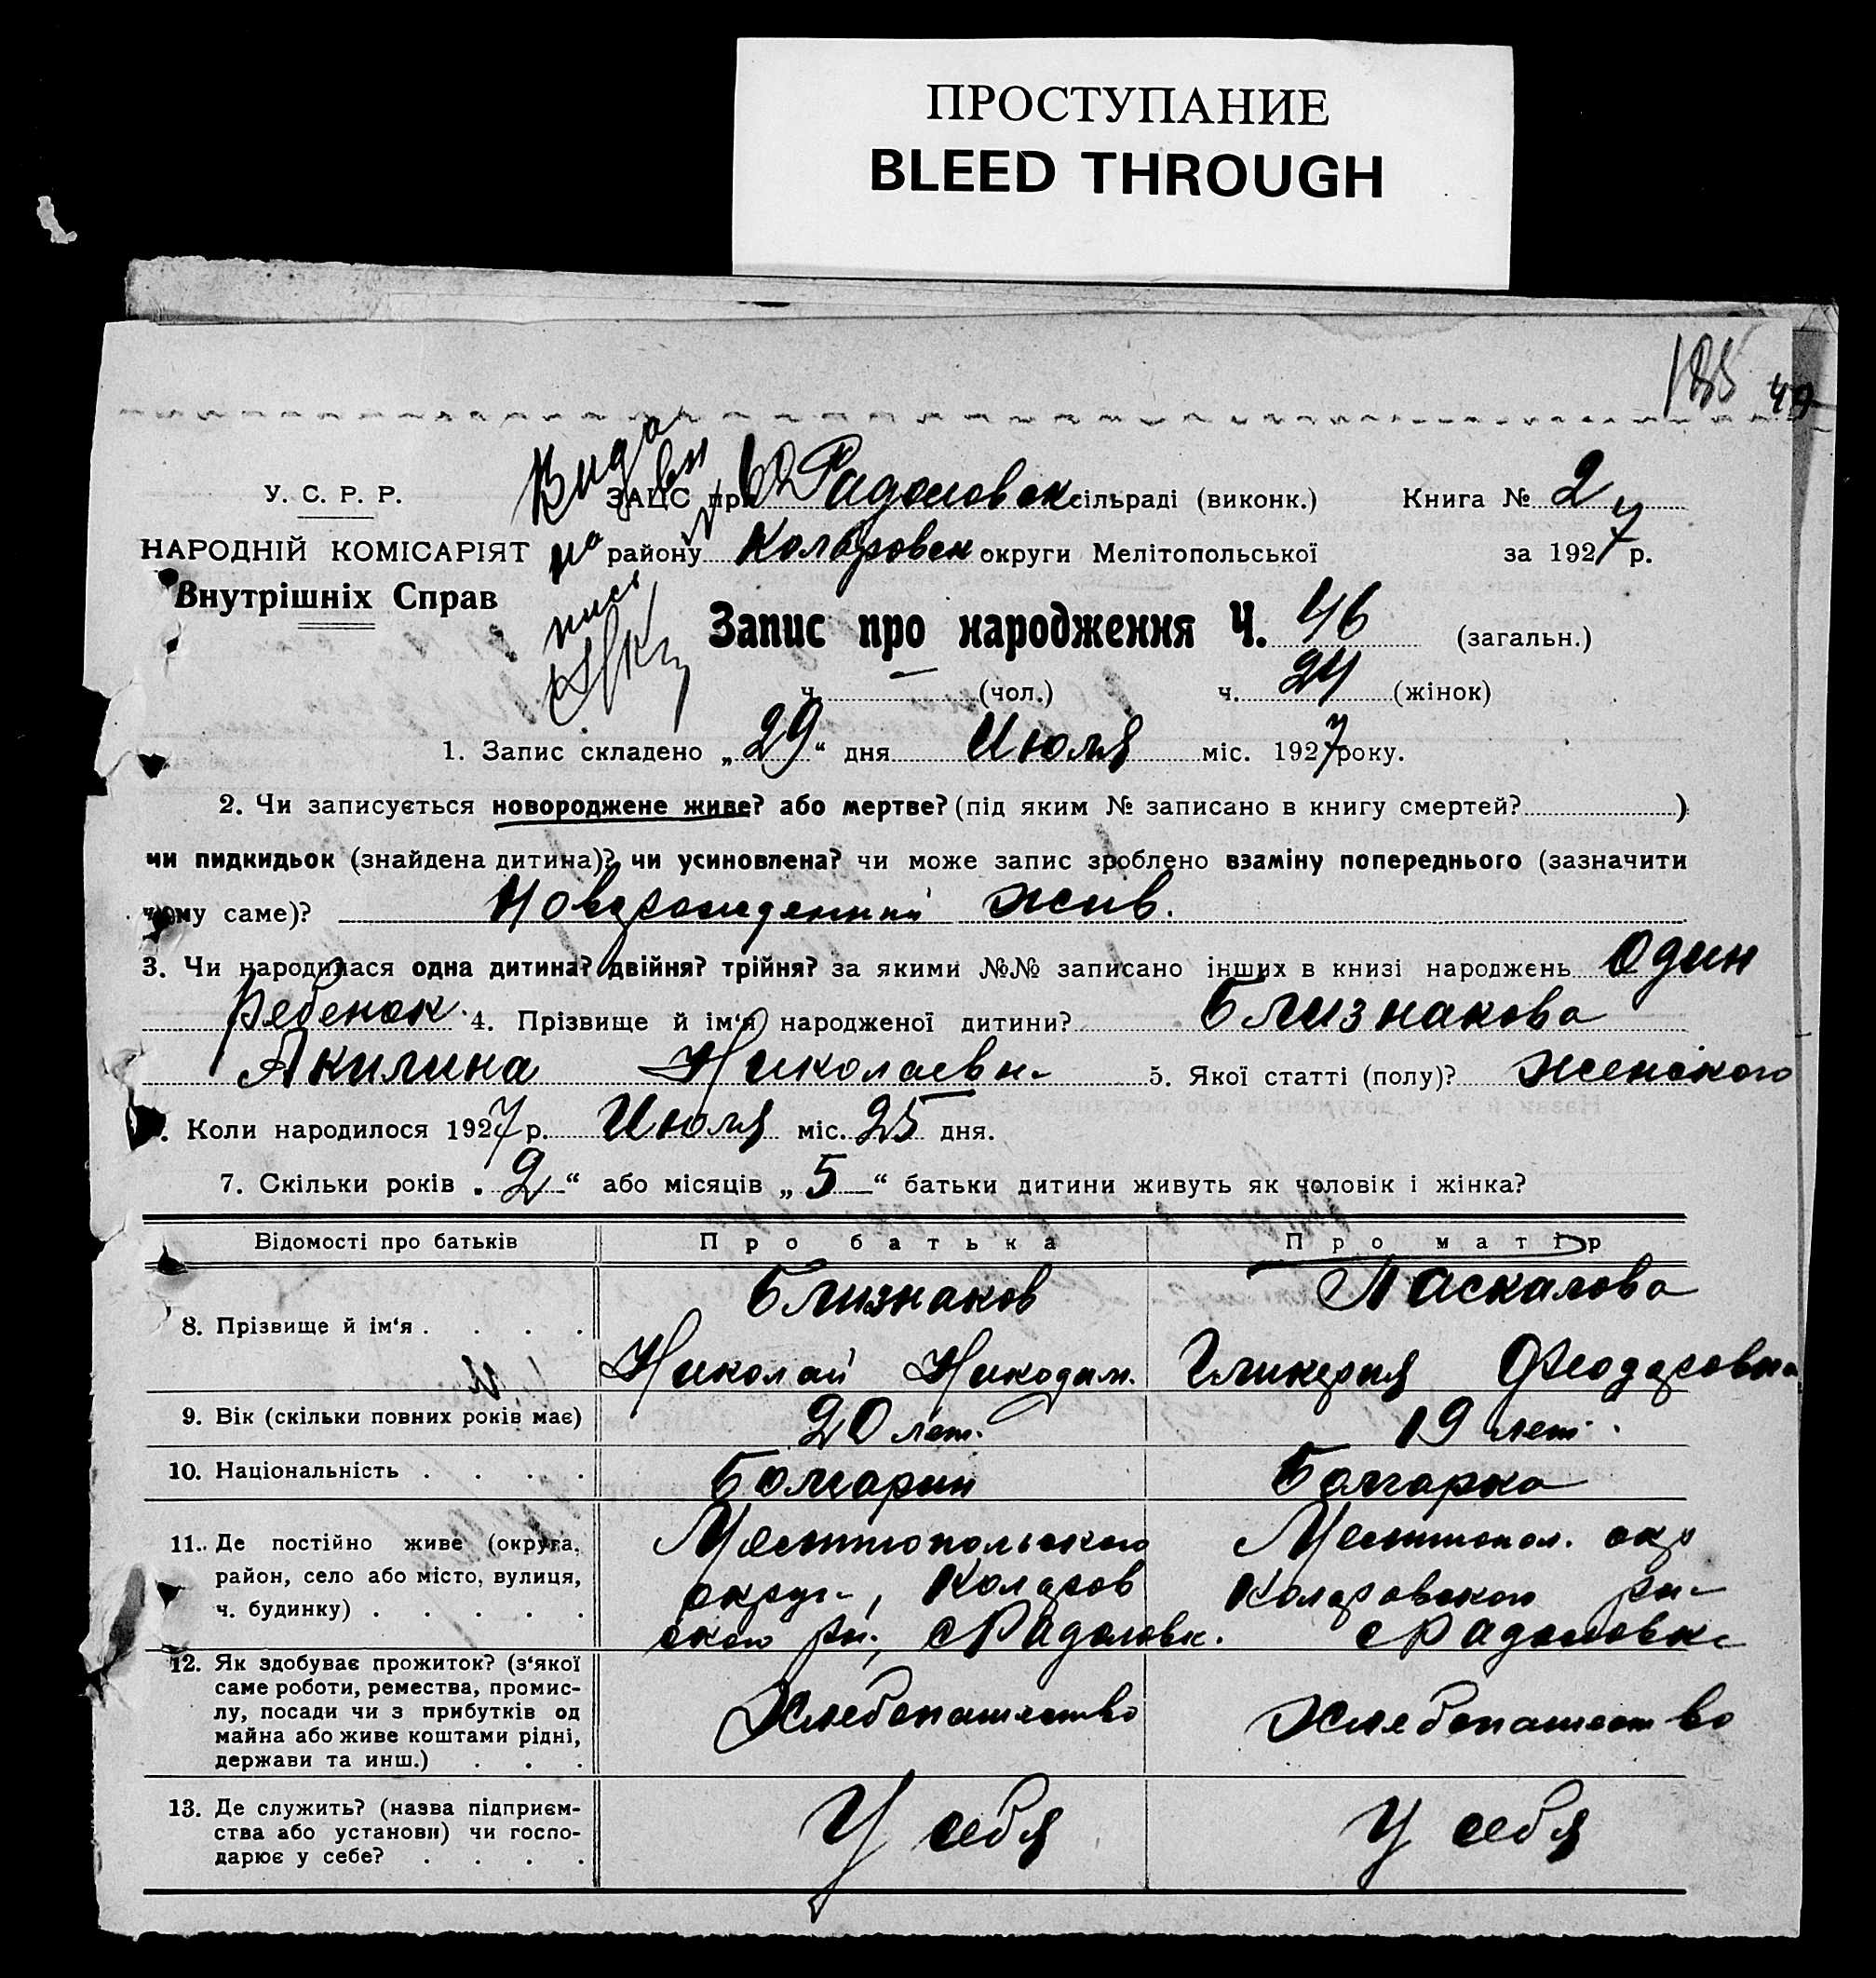 ПРОСТУПАНИЕ
BLEED THROUGH
185 49
У. С. Р. Р.
НАРОДНІЙ КОМІСАРІЯТ
Внутрішніх Справ
ЗАЦС при Радоловск сільраді (виконк.) Книга № 2
району Коларовск округи Мелітопольської за 1927 р.
Запис про народження Ч. 46 (загальн.)
ч. — (чол.) ч. 24 (жінок)
1. Запис складено „29“ дня Июля міс. 1927 року.
2. Чи записується новороджене живе? або мертве? (під яким № записано в книгу смертей? )
чи пидкидьок (знайдена дитина)? чи усиновлена? чи може запис зроблено взаміну попереднього (зазначити
чому саме)? Новорожденный жив.
3. Чи народилася одна дитина? двійня? трійня? за якими №№ записано інших в книзі народжень Один
ребенок. 4. Прізвище й ім'я народженої дитини? Близнакова
Акилина Николаевн. 5. Якої статті (полу)? женского
. Коли народилося 1927 р. Июля міс. 25 дня.
7. Скільки років „2“ або місяців „5“ батьки дитини живуть як чоловік і жінка?
Відомості про батьків Про батька Про матір
8. Прізвище й ім'я . . . . Близнаков Николай Никодим. Паскалова Гликерия Феодоровна
9. Вік (скільки повних років має) 20 лет. 19 лет.
10. Національність . . . . Болгарин Болгарка
11. Де постійно живе (округа,
район, село або місто, вулиця,
ч. будинку) . . . . .
Мелитопольского
округ., Коларов
ского рн., с Радоловк.
Мелитопол. окр
Коларовского рн
с Радоловк
12. Як здобуває прожиток? (з'якої
саме роботи, ремества, промис-
лу, посади чи з прибутків од
майна або живе коштами рідні,
держави та инш.) . . .
Хлебопашество Хлебопашество
13. Де служить? (назва підприєм-
ства або установи) чи госпо-
дарює у себе? . . . .
У себя У себя